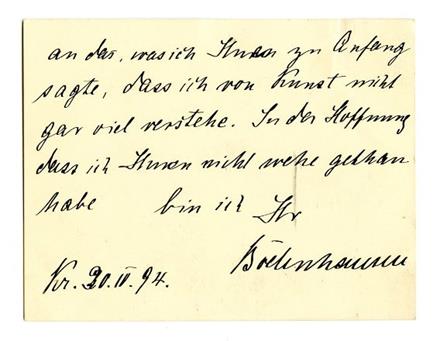 an das, was ich Ihnen zu Anfang
sagte, dass ich von Kunst nicht
gar viel verstehe. In der Hoffnung
dass ich Ihnen nicht wehe gethan
habe bin ich Ihr
Bodenhausen
Kr. 20.IV.94.